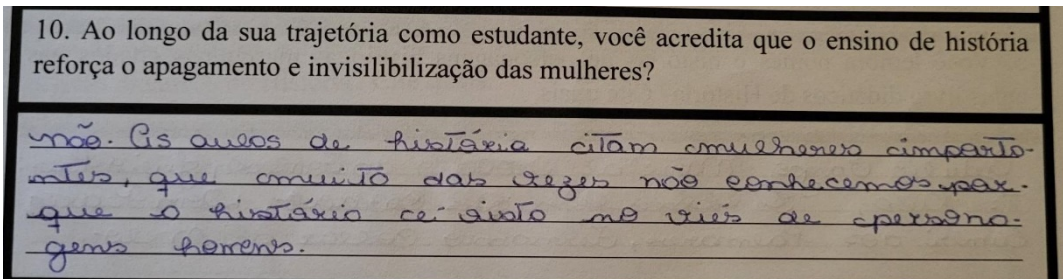 10. Ao longo da sua trajetória como estudante, você acredita que o ensino de história
reforça o apagamento e invisilibilização das mulheres?
não. As aulas de história citam mulheres importa-
ntes, que muito das vezes não conhecemos por-
que a história é visto no viés de persona-
gens homens.